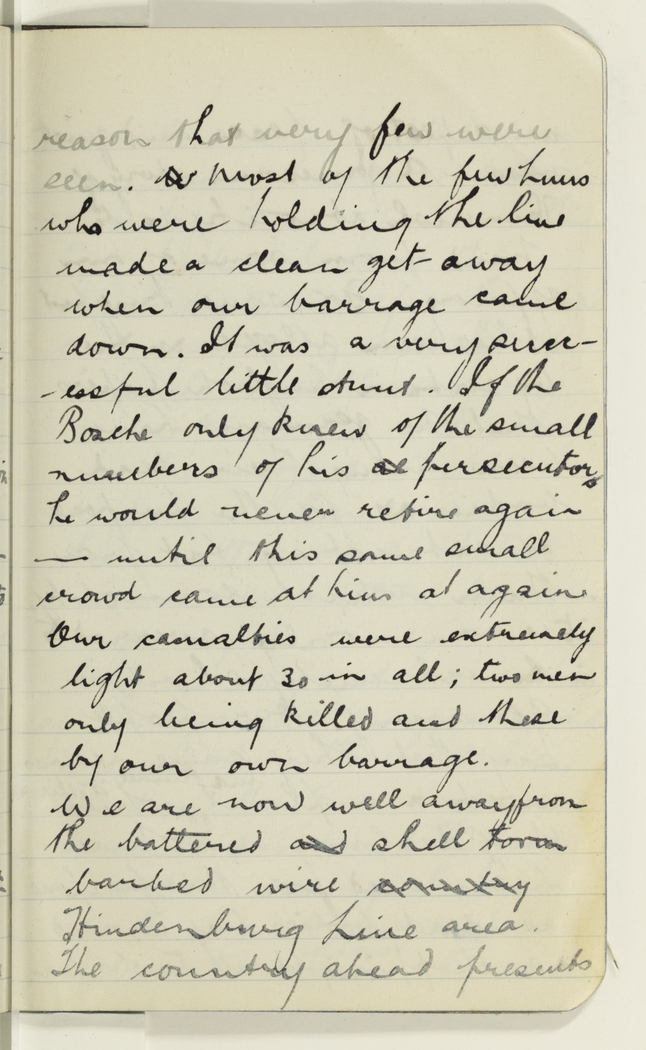 reason that very few were
seen. Most of the few huns
who were holding the line
made a clean get-away
when our barrage came
down. It was a very succ-
-essful little stunt. If the
Bosche only knew of the small
numbers of his persecutors
he would never retire again
— until this same small
crowd came at him at again
Our casualties were extremely
light about 30 in all; two men
only being killed and these
by our own barrage.
We are now well away from
the battered and shell torn
barbed wire country
Hindenburg Line area.
The country ahead presents